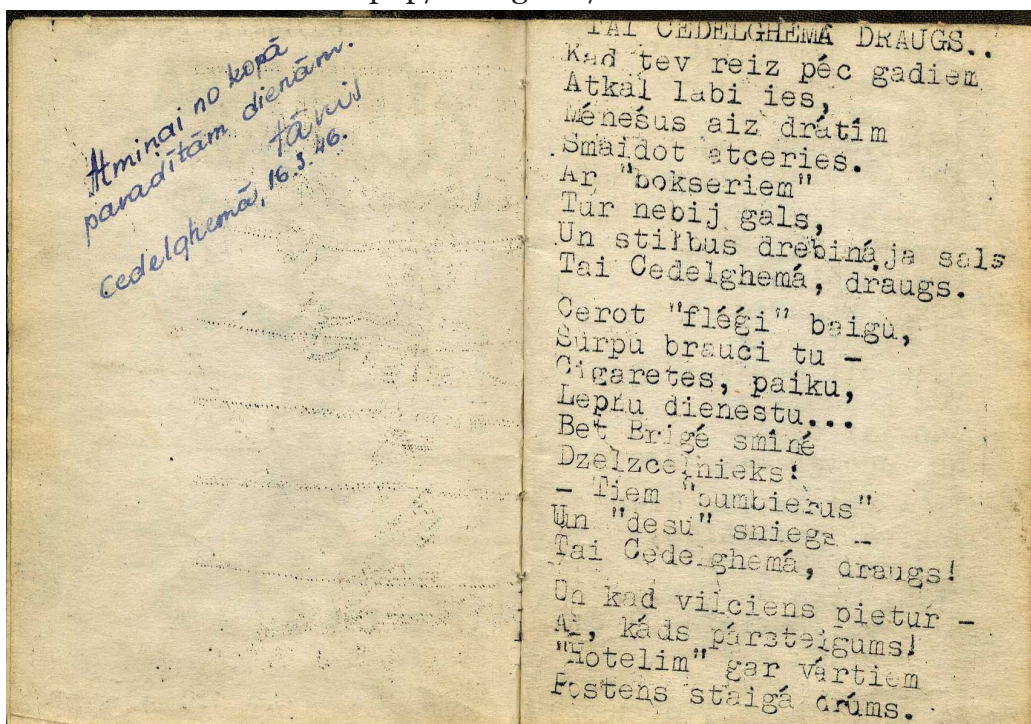 Atmiņai no kopā
pavadītām dienām.
Cedelghemā, 16.3.46.
TAI CEDELGHEMÁ DRAUGS..
Kad tev reiz péc gadiem
Atkál labi ies,
Ménešus aiz drátim
Smaidot atceries.
Ar "bokseriem"
Tur nebij gals,
Un stilbus drebinája sals
Tai Cedelghemá, draugs.
Cerot "flégi" baigu,
Šurpu brauci tu -
Cigaretes, paiku,
Lepnu dienestu...
Bet Brigé smíné
Dzelzcelnieks!
- Tiem "bumbierus"
Un "desu" sniegs -
Tai Cedelghemá, draugs!
Un kad vilciens pietur -
Ai, káds pársteigums!
"Hotelim" gar vártiem
Postens staigá drúms.